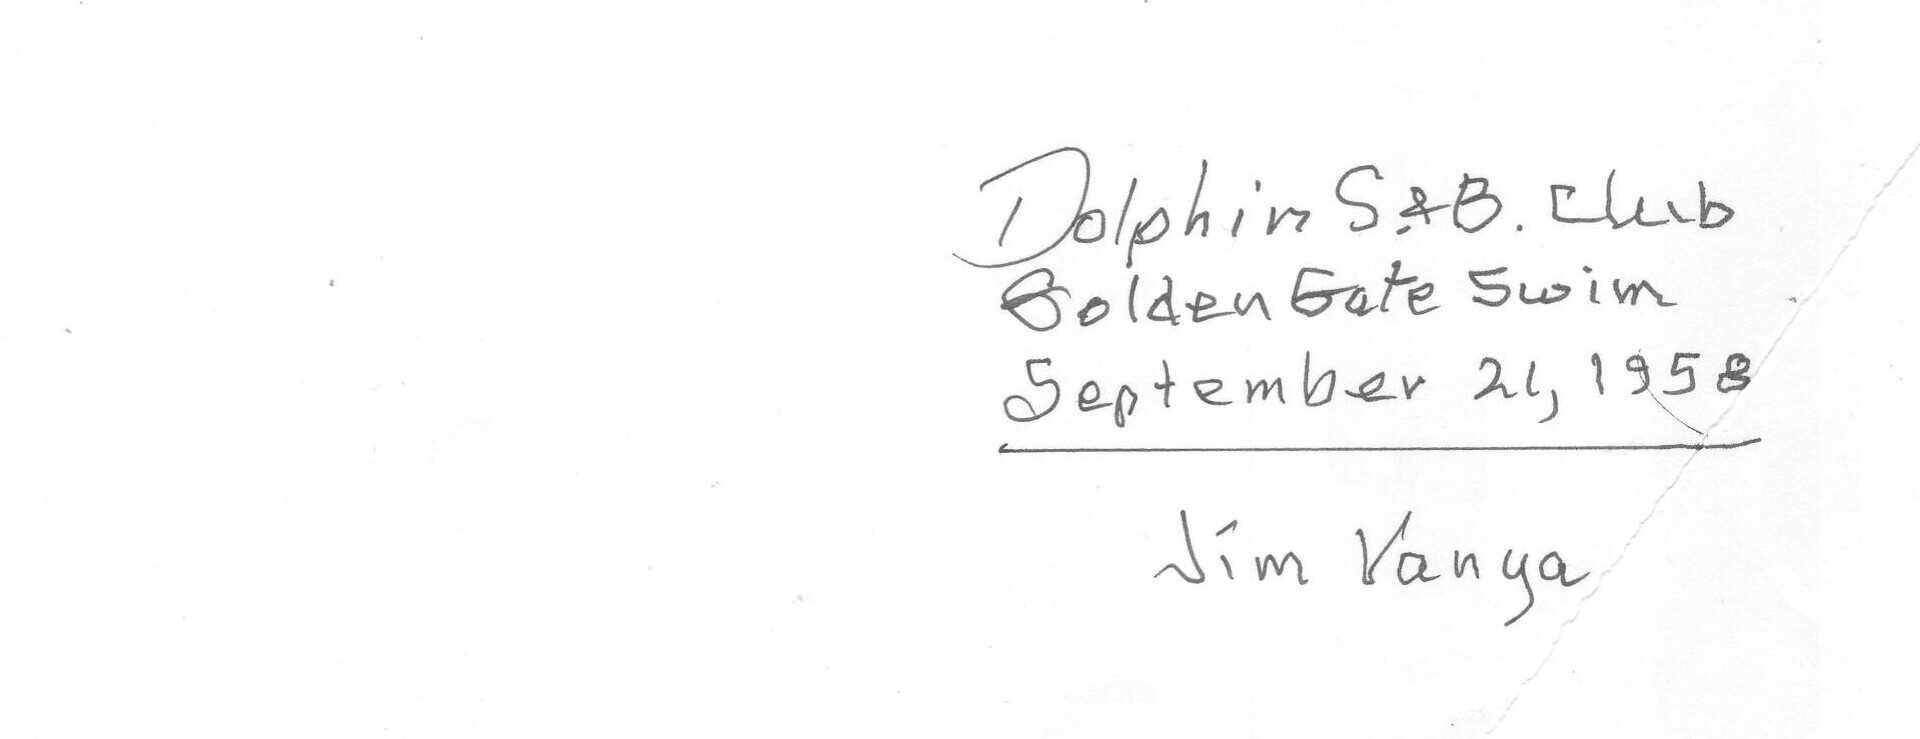 Dolphin S.&B. Club
Golden Gate Swim
September 21, 1958
Jim Vanya